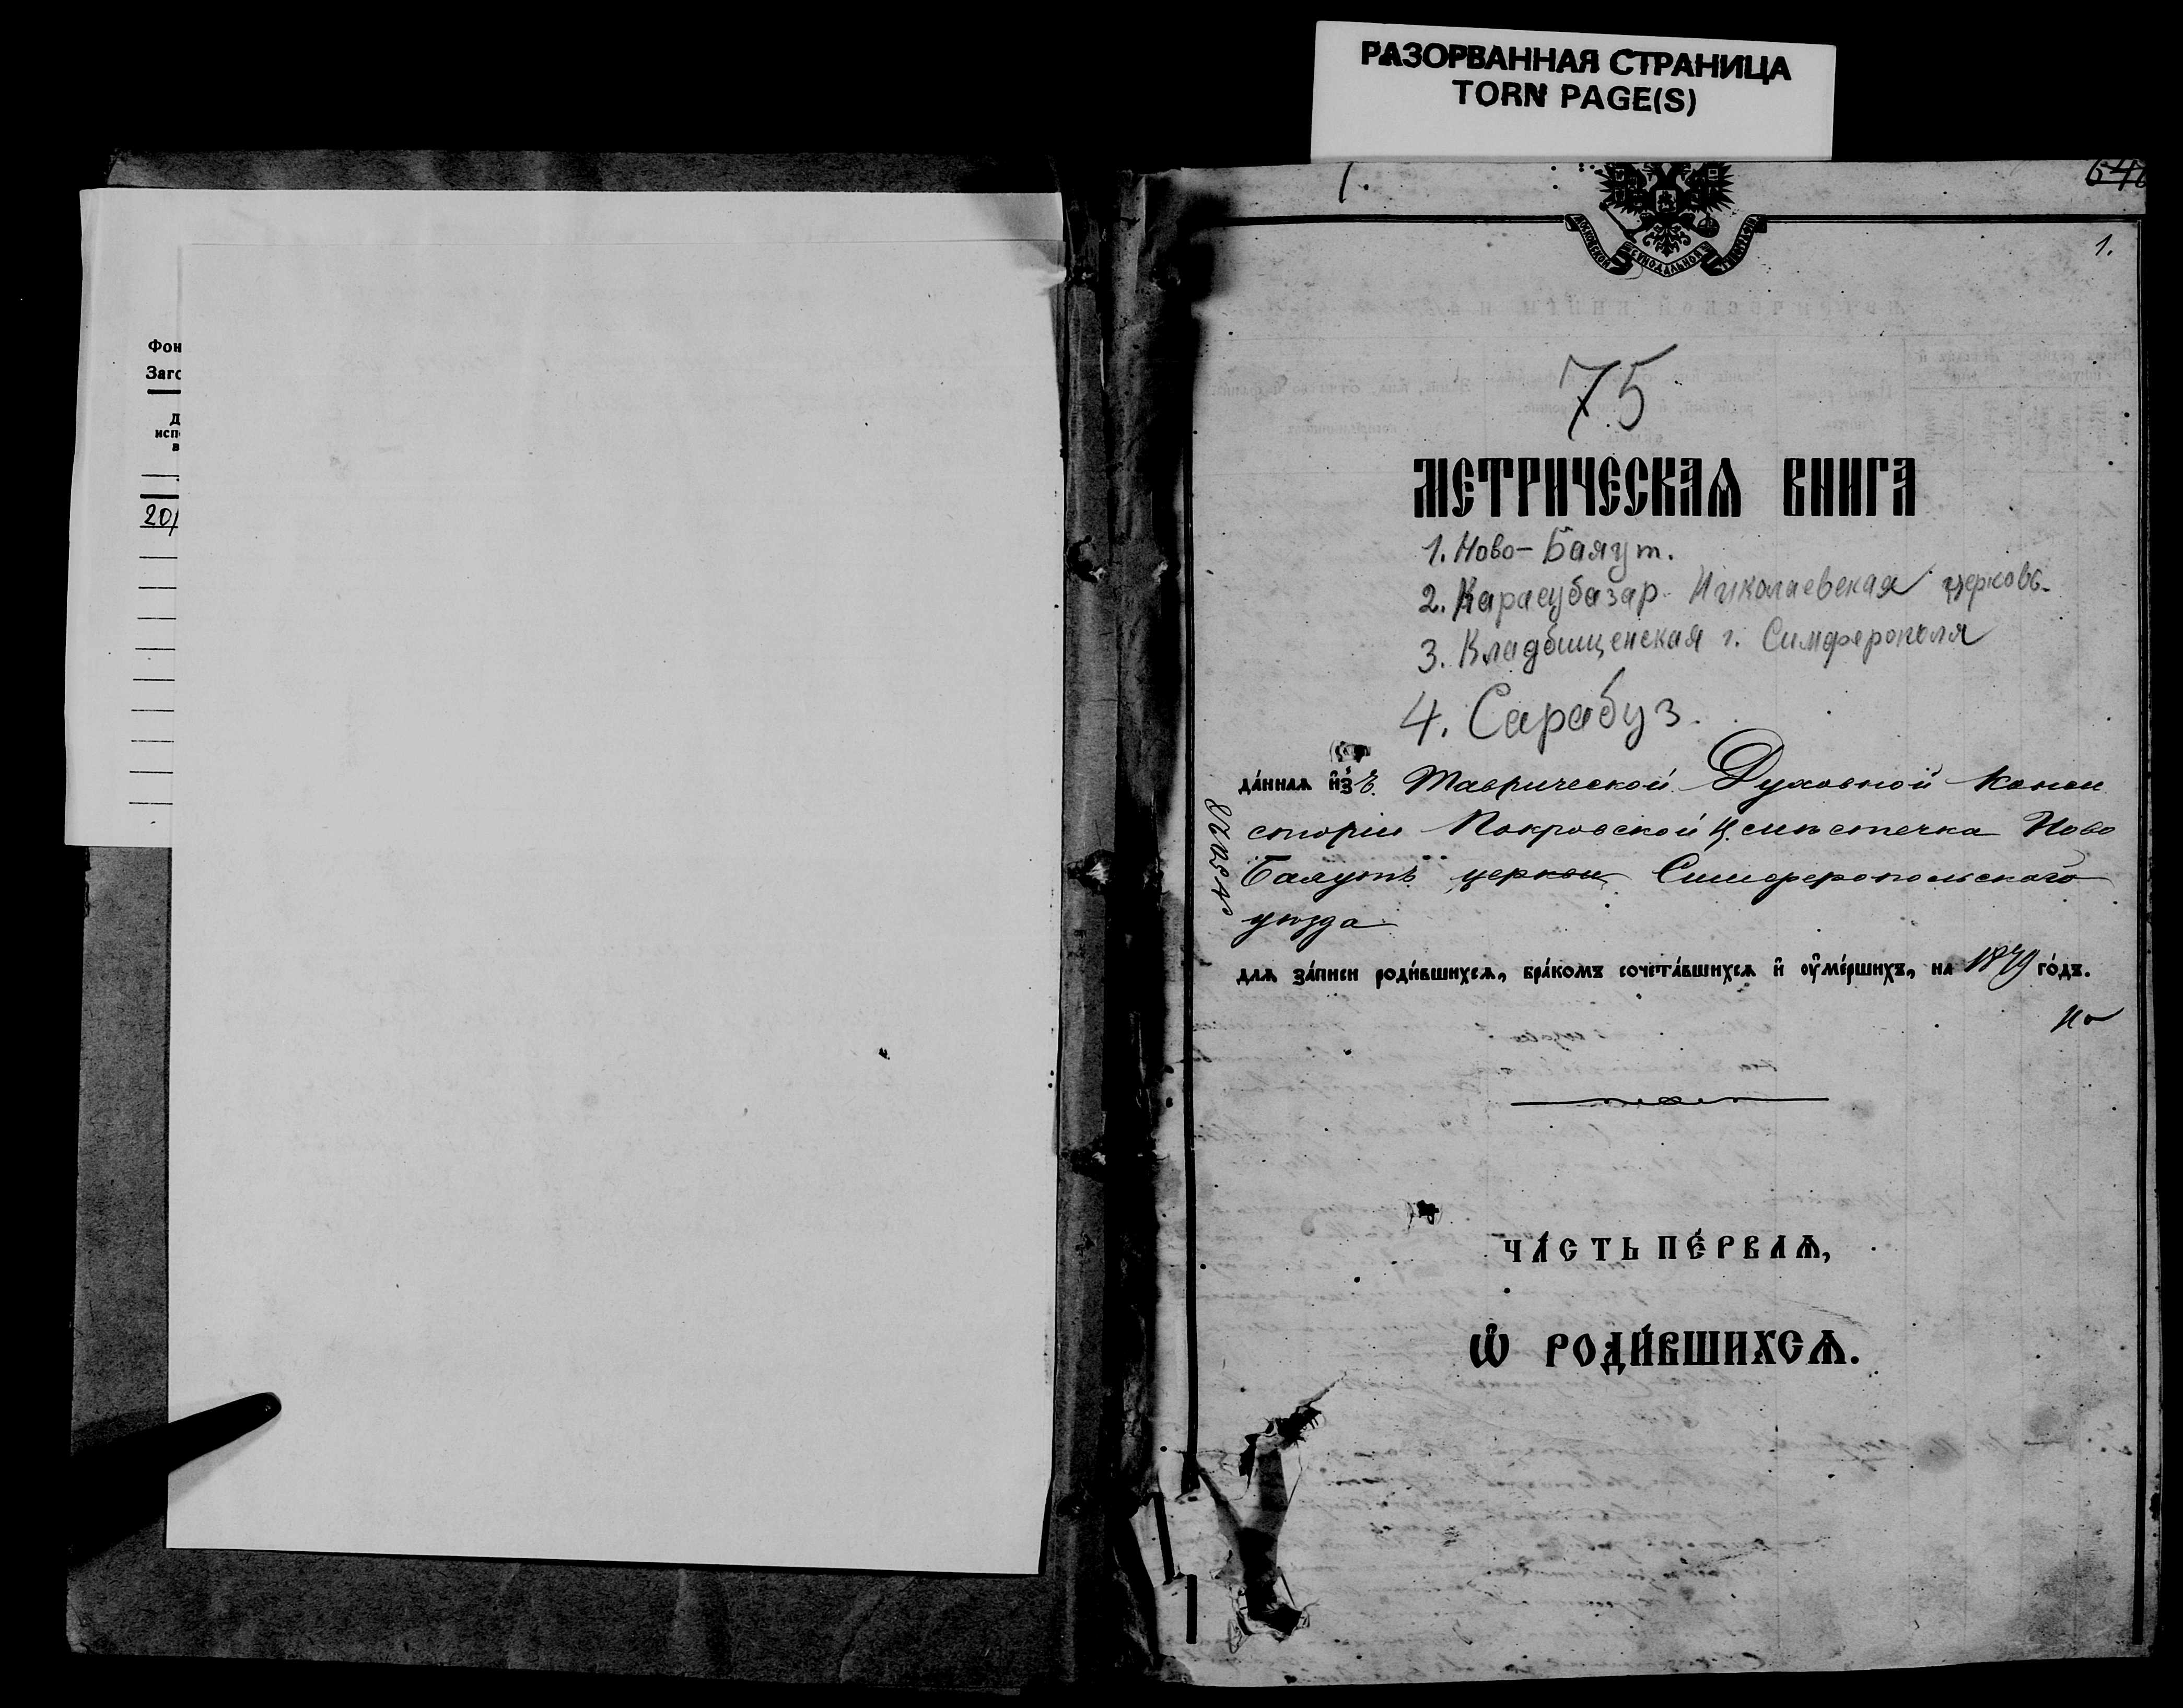 РАЗОРВАННАЯ СТРАНИЦА
TORN PAGE(S)
Фон
Загс
Д
исп
в
20/
1.
1.
МОСКОВСКОЙ СѴНОДАЛЬНОЙ ТИПОГРАФІИ
75
МЕТРИЧЕСКАѦ КНИГА
1. Ново-Баяут.
2. Карасубазар Николаевская церковь
3. Кладбищенская г. Симферополя
4. Сарабуз.
да́ннаѧ и҆зъ Таврической Духовной Конси
сторіи Покровской ц. мѣстечка Ново
Баяутъ церкви Симферопольскаго
уѣзда
длѧ за́писи роди́вшихсѧ, бра́комъ сочета́вшихсѧ и҆ ᲂу҆ме́ршихъ, на 1879 го́дъ.
ЧА́СТЬ ПЕ́РВАѦ,
Ѡ҆ РОДИ́ВШИХСѦ.